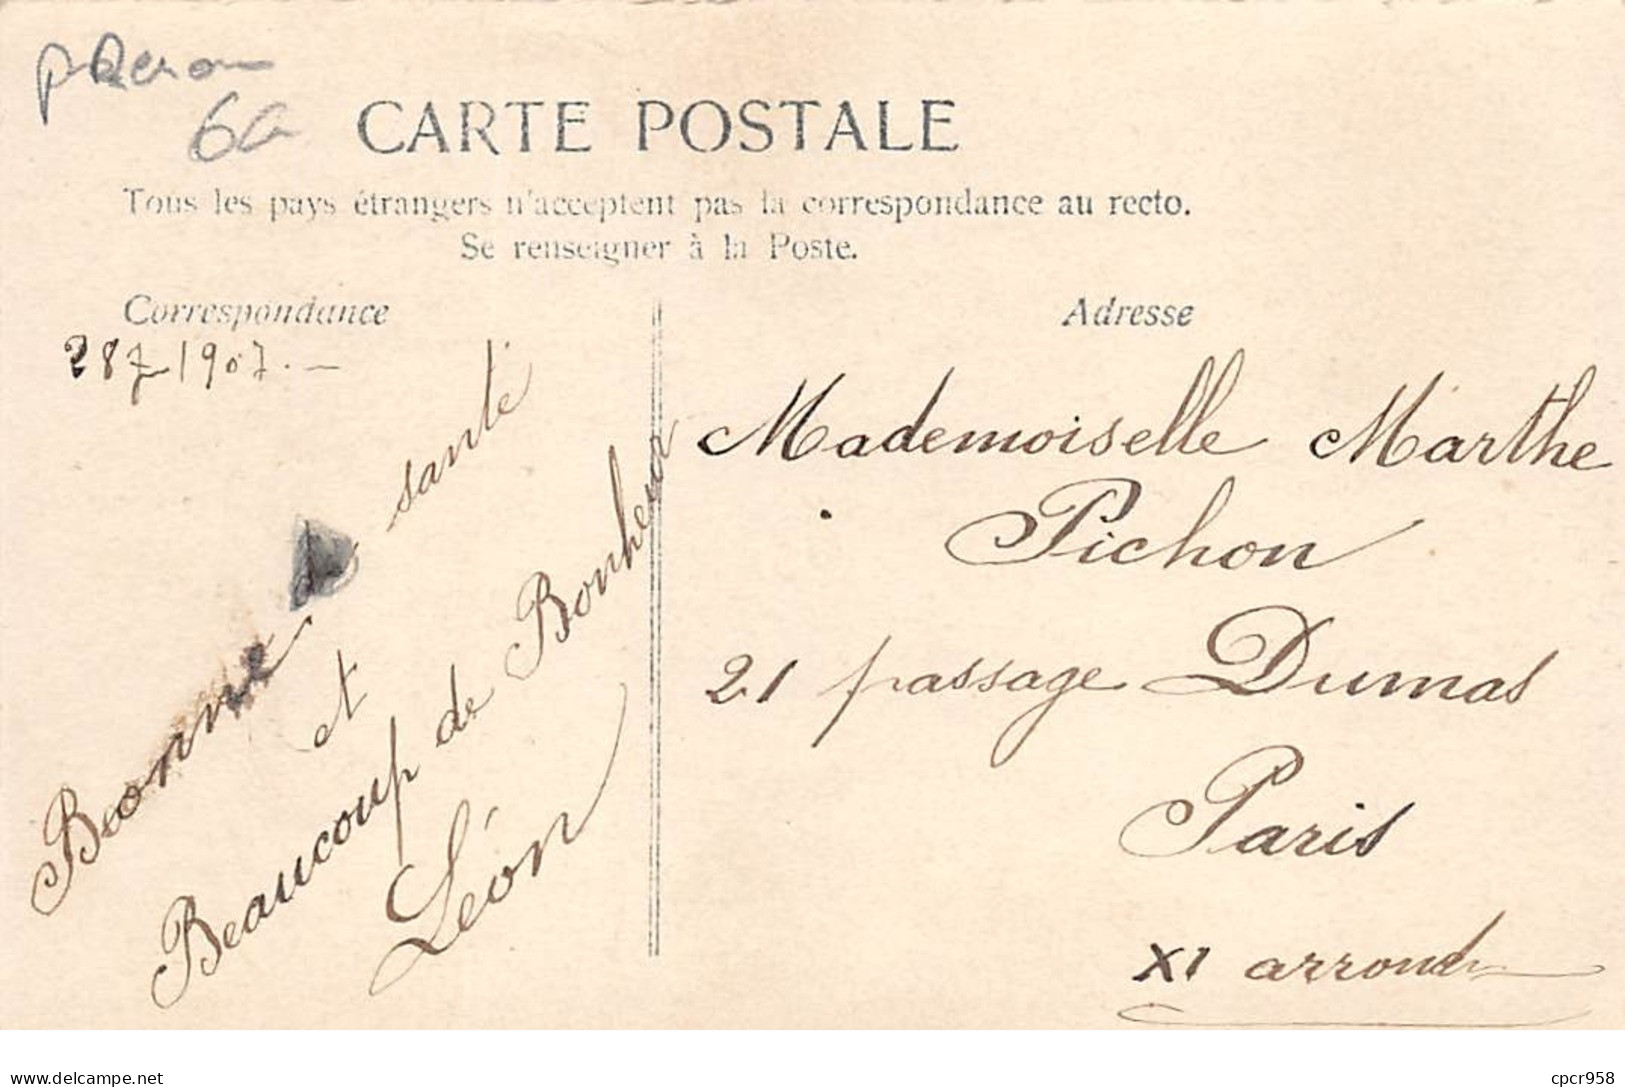 6a
CARTE POSTALE
Tous les pays étrangers n'acceptent pas la correspondance au recto.
Se renseigner à la Poste.
Correspondance
28 7 1907. —
Bonne de santé
et
Beaucoup de Bonheur
Léon
Adresse
Mademoiselle Marthe
Pichon
21 passage Dumas
Paris
XI arrond
delcampe.net
cpcr958